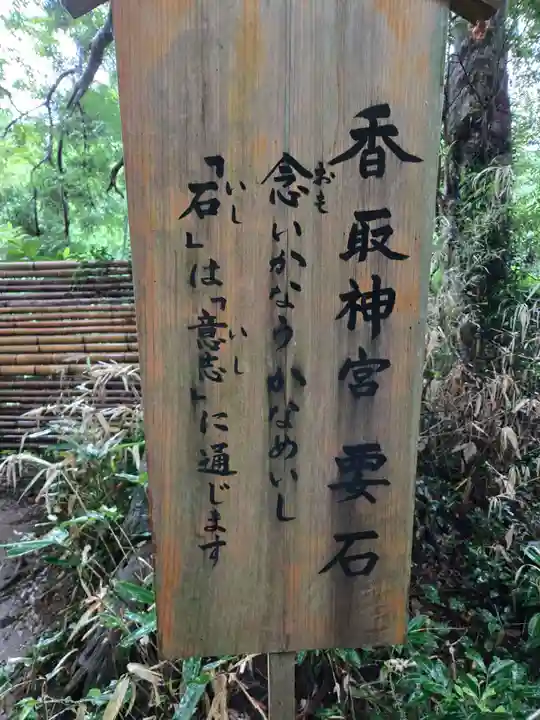 香取神宮 要石
念いかなうかなめいし
「石」は「意志」に通じます
おも
いし
いし